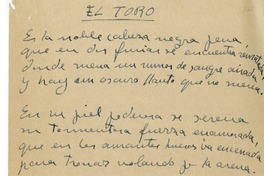 EL TORO
Es la noble cabeza negra pena
que en dos furias se encuentra rematada,
donde suena un rumor de sangre airada
y hay un oscuro llanto que no suena.
En su piel poderosa se serena
su tormentosa fuerza enamorada,
que en los amantes huesos va encerrada
para tronar volando por la arena.